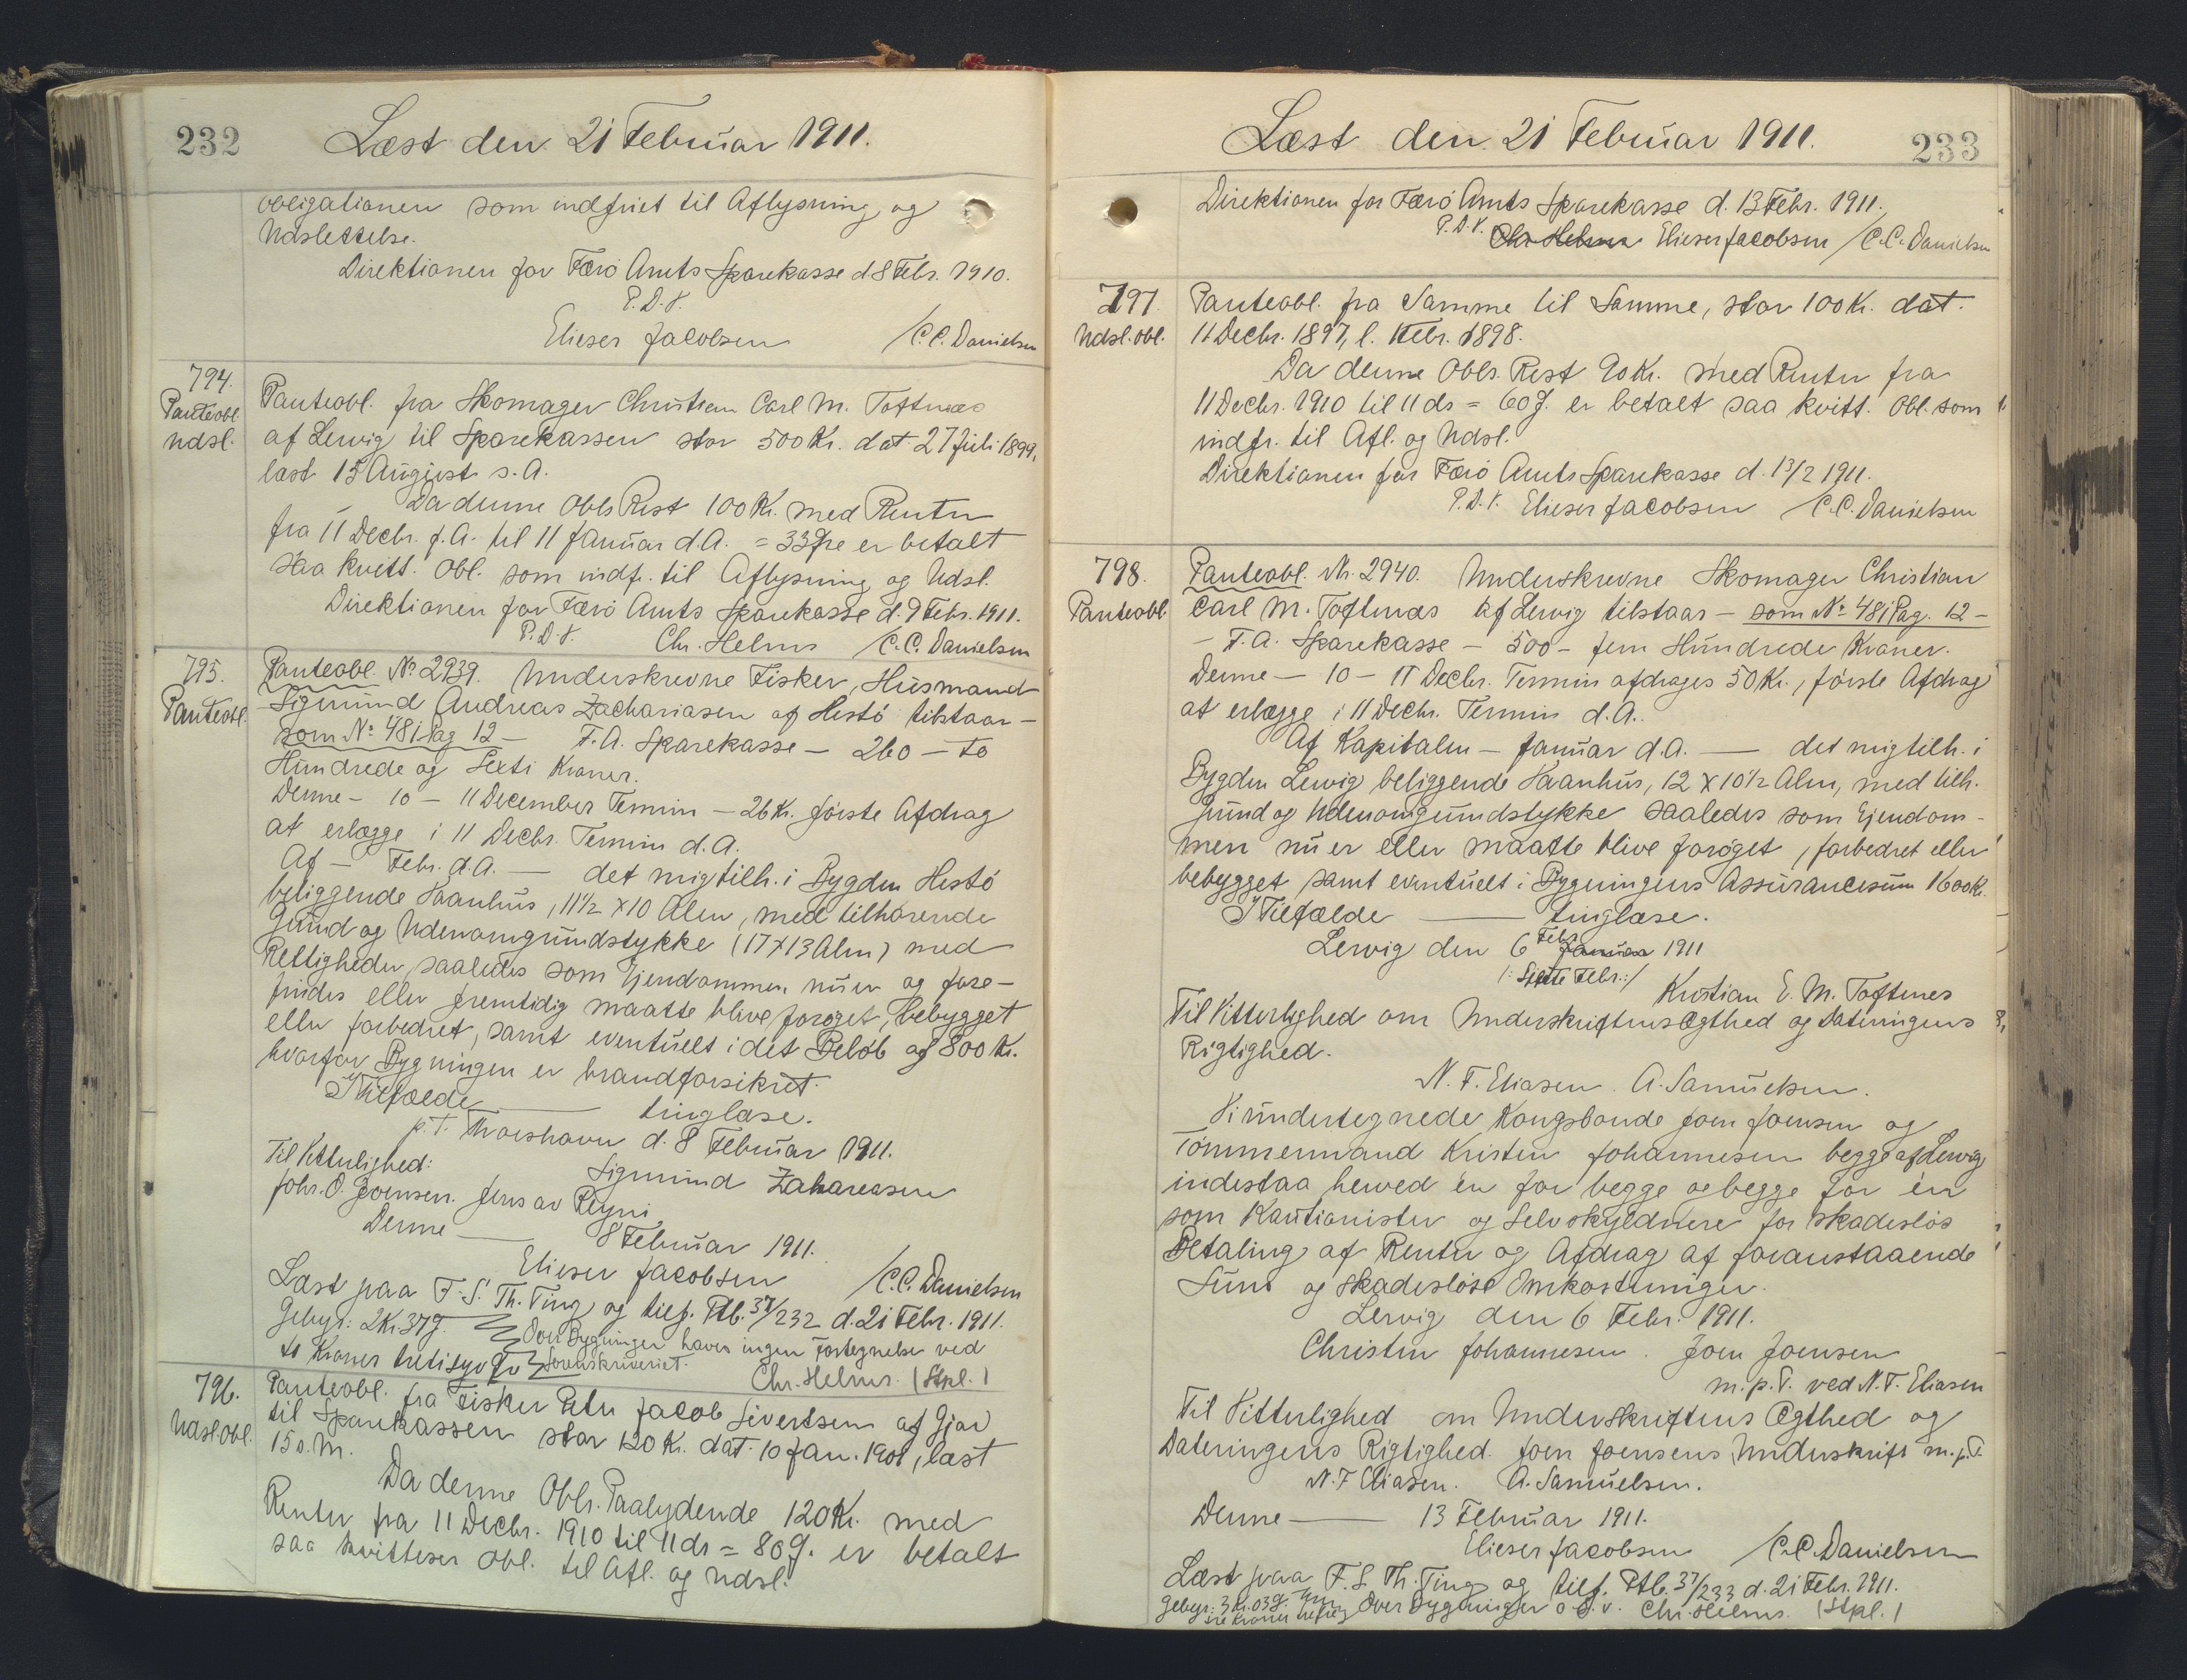 232
Læst den 21 Februar 1911.
obligationen som indfriet til Aflysning og
Udslettelse.
Direktionen for Færö Amts Sparekasse d 8 Febr. 1910.
P.D.V.
Elieser Jacobsen /C.C. Danielsen
794.
Panteobl.
Udsl.
Panteobl. fra Skomager Christian Carl M. Toftnæs
af Lervig til Sparekassen stor 500 Kr. dat 27 Juli 1899,
læst 15 August s. A.
Da denne Obls Rest 100 Kr. med Renter
fra 11 Decbr. f. A. til 11 Januar d. A. = 33 Øre er betalt
saa kvitt. Obl. som indfr. til Aflysning og Udsl.
Direktionen for Færö Amts Sparekasse d. 9 Febr. 1911.
P.D.V. Chr. Helms /C.C. Danielsen
795.
Panteobl.
Panteobl. No 2939. Underskrevne Fisker, Husmand
Sigmund Andreas Zachariasen af Hestö tilstaar –
som No 48 i Pag 12 – F. A. Sparekasse – 260 – to
Hundrede og Sexti Kroner.
Denne – 10 – 11 December Termin – 26 Kr. første Afdrag
at erlægge i 11 Decbr. Termin d. A.
Af – Febr. d. A. – det mig tilh. i Bygden Hestö
beliggende Vaanhus, 11½ x 10 Alen, med tilhørende
Grund og Udenomgrundstykke (17 x 13 Alen) med
Rettigheder, saaledes som Ejendommen nu er og fore-
findes eller fremtidig maatte blive forøget, bebygget
eller forbedret, samt eventuelt i det Beløb af 800 Kr.
hvorfor Bygningen er brandforsikret.
I Tilfælde — tinglæse.
p. T. Thorshavn d. 8 Februar 1911.
Til Vitterlighed: Sigmund Zakareasen
Johs. O. Joensen. Jens av Reyni
Denne — 8 Februar 1911.
Elieser Jacobsen /C.C. Danielsen
Læst paa F. S. Th. Ting og tilf. Ptb. 37/232 d. 21 Febr. 1911.
Gebyr: 2 Kr. 37 Ø. Over Bygninger haves ingen Fortegnelse ved
to Kroner tretisyv Øre Sorenskriveriet. Chr. Helms. (Stpl.)
796.
Udsl. Obl.
Panteobl. fra Fisker Peter Jacob Sivertsen af Gjov
til Sparekassen stor 120 Kr. dat. 10 Jan. 1901, læst
15 s. M.
Da denne Obls. Paalydende 120 Kr. med
Renter fra 11 Decbr. 1910 til 11 ds = 80 Ø. er betalt
saa kvitteres Obl. til Afl. og Udsl.
Læst den 21 Februar 1911.
233
Direktionen for Færö Amts Sparekasse d. 13 Febr. 1911.
P.D.V. Chr Helms Elieser Jacobsen /C.C. Danielsen
797
Udsl. Obl.
Panteobl. fra Samme til Samme, stor 100 Kr. dat.
11 Decbr. 1897, l. 1 Febr. 1898.
Da denne Obls. Rest 90 Kr. med Renter fra
11 Decbr. 1910 til 11 ds = 60 Ø. er betalt saa kvitt. Obl. som
indfr. til Afl. og Udsl.
Direktionen for Færö Amts Sparekasse d. 13/2 1911.
P.D.V. Elieser Jacobsen /C.C. Danielsen
798.
Panteobl.
Panteobl. Nr. 2940. Underskrevne Skomager Christian
Carl M. Toftnæs af Lervig tilstaar – som No 48 i Pag. 12 –
– F. A. Sparekasse – 500 – fem Hundrede Kroner.
Denne – 10 – 11 Decbr. Termin afdrages 50 Kr., første Afdrag
at erlægge i 11 Decbr. Termin d. A.
Af Kapitalen – Januar d. A. — det mig tilh. i
Bygden Lervig beliggende Vaanhus, 12 x 10½ Alen, med tilh.
Grund og Udenomgrundstykke saaledes som Ejendom-
men nu er eller maatte blive forøget, forbedret eller
bebygget samt eventuelt i Bygningens Assurancesum 1600 Kr.
I Tilfælde — tinglæse.
Lervig den 6 Januar Febr 1911
/: Sjette Febr :/
Kristian E. M. Toftnes
Til Vitterlighed om Underskriftens Ægthed og Dateringens
Rigtighed.
N. F. Eliasen. A. Samuelsen.
Vi undertegnede Kongsbonde Joen Joensen og
Tømmermand Kristen Johannesen begge af Lervig
indestaa herved én for begge og begge for én
som Kautionister og Selvskyldnere for skadesløs
Betaling af Renter og Afdrag af foranstaaende
Sum og skadesløse Omkostninger.
Lervig den 6 Febr. 1911.
Christen Johannesen. Joen Joensen
m. p. P. ved N. F. Eliasen
Til Vitterlighed om Underskriftens Ægthed og
Dateringens Rigtighed. Joen Joensens Underskrift m. p. P.
N. F Eliasen. A. Samuelsen.
Denne — 13 Februar 1911.
Elieser Jacobsen /C.C. Danielsen
Læst paa F. S. Th. Ting og tilf. Ptb. 37/233 d. 21 Febr. 1911.
Gebyr: 3 Kr. 03 Ø. Over Bygninger o. s. v. Chr. Helms. (Stpl.)
tre Kroner tre Øre